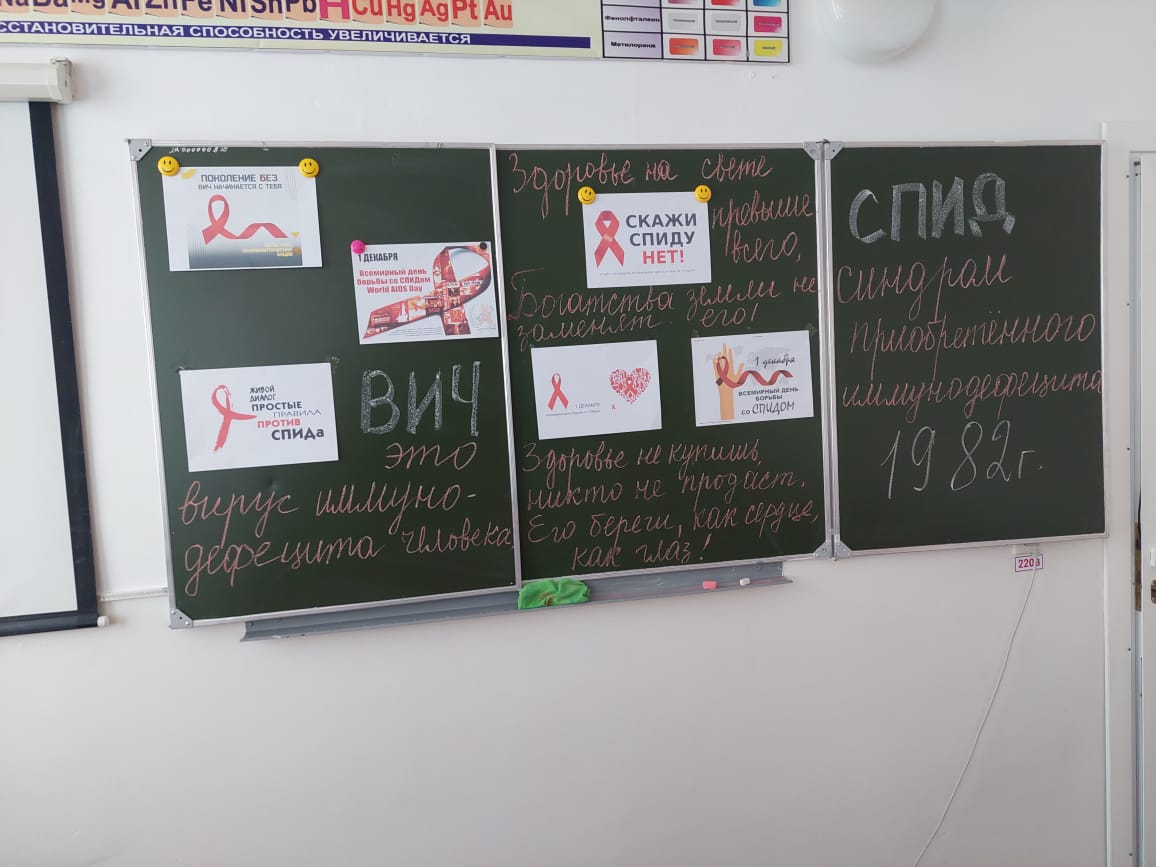 Na Ba Mg Al Zn Fe Ni Sn Pb H Cu Hg Ag Pt Au
ССТАНОВИТЕЛЬНАЯ СПОСОБНОСТЬ УВЕЛИЧИВАЕТСЯ
Фенолфталеин
Метилоранж
ПОКОЛЕНИЕ БЕЗ
ВИЧ НАЧИНАЕТСЯ С ТЕБЯ
1 ДЕКАБРЯ
Всемирный день
борьбы со СПИДом
World AIDS Day
ЖИВОЙ
ДИАЛОГ
ПРОСТЫЕ
ПРАВИЛА
ПРОТИВ
СПИДа
ВИЧ
это
вирус иммуно-
дефецита человека
Здоровье на свете
превыше
всего,
СКАЖИ
СПИДУ
НЕТ!
Богатства земли не
заменят его!
1 ДЕКАБРЯ
1 декабря
ВСЕМИРНЫЙ ДЕНЬ
БОРЬБЫ
со СПИДОМ
Здоровье не купишь,
никто не продаст.
Его береги, как сердце,
как глаз!
СПИД
синдром
приобретённого
иммунодефецита
1982г.
220В